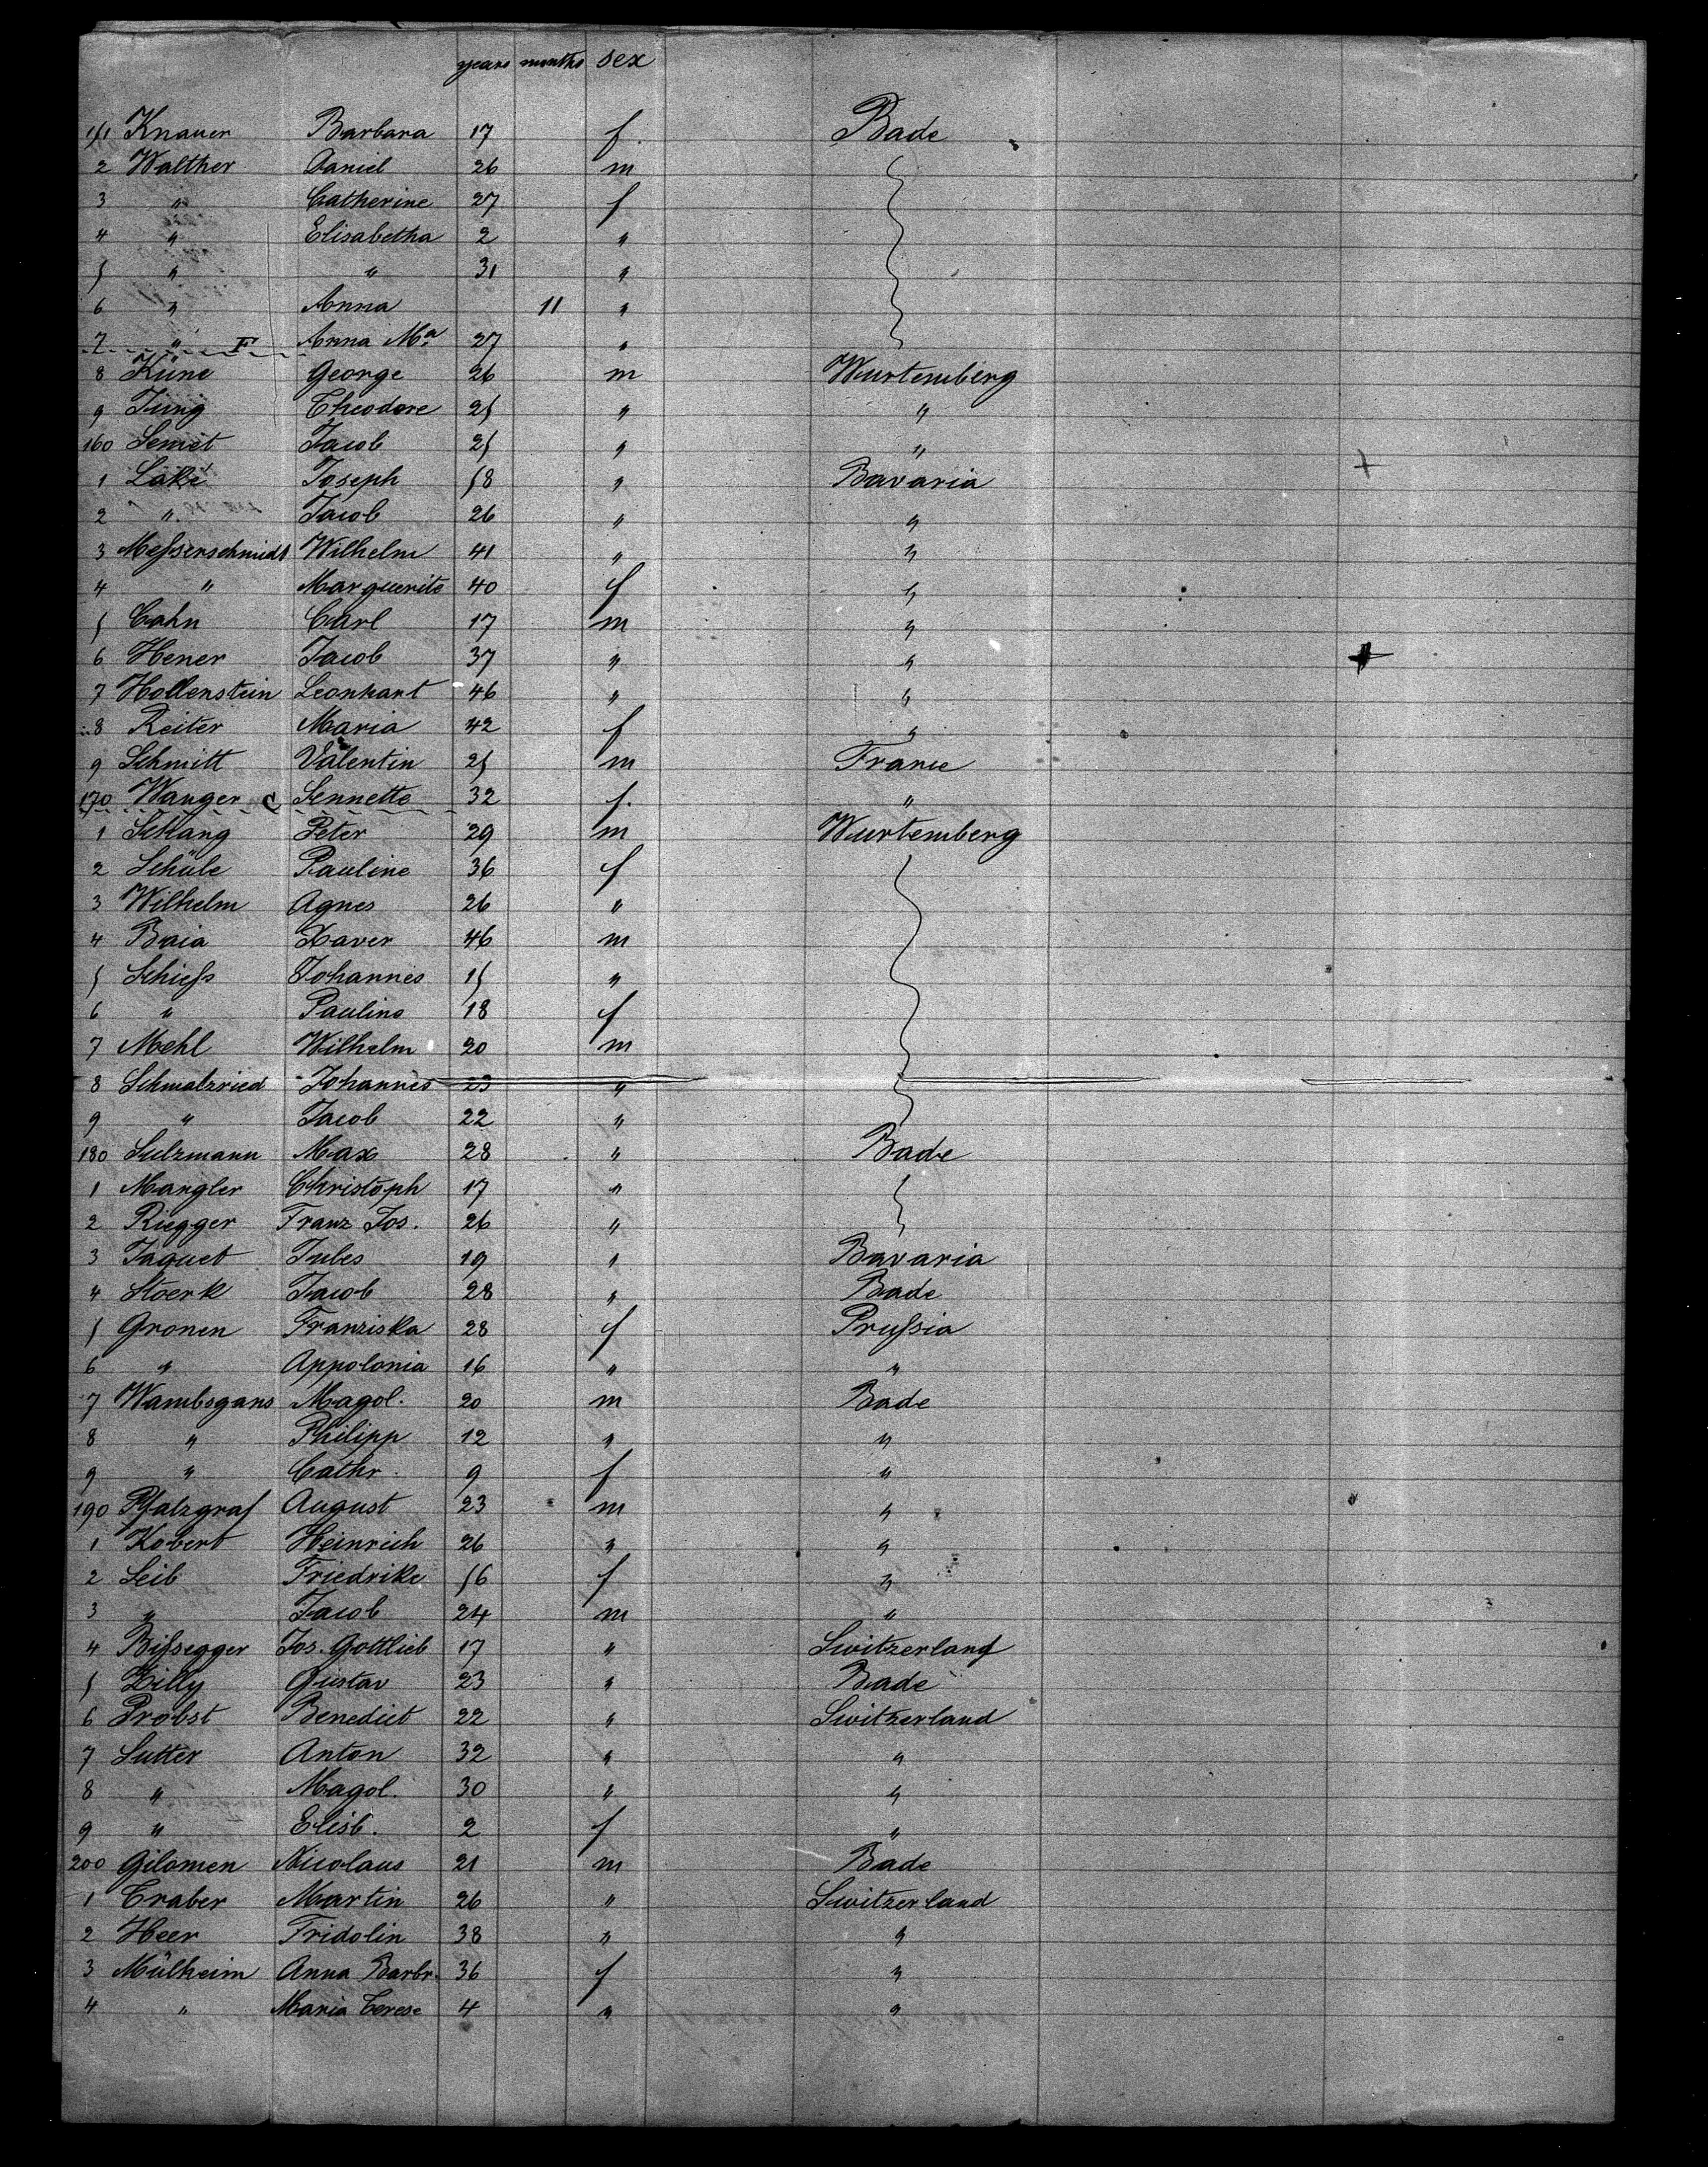 years months sex
151 Knauer Barbara 17 f. Bade
2 Walther Daniel 26 m
3 " Catherine 27 f
4 " Elisabetha 2 "
5 " " 31 "
6 " Anna 11 "
7 " F Anna Ma 27 "
8 Küne George 26 m Wurtemberg
9 Jung Theodore 25 " "
160 Semet Jacob 25 " "
1 Laké Joseph 58 " Bavaria
2 " Jacob 26 " "
3 Messerschmidt Wilhelm 41 " "
4 " Marguerite 40 f "
5 Cahn Carl 17 m "
6 Hener Jacob 37 " "
7 Hollenstein Leonhart 46 " "
8 Reiter Maria 42 f "
9 Schmitt Valentin 25 m France
170 Wanger C Jennette 32 f. "
1 Schang Peter 29 m Wurtemberg
2 Schüle Pauline 36 f
3 Wilhelm Agnes 26 "
4 Baia Xaver 46 m
5 Schiess Johannes 15 "
6 " Pauline 18 f
7 Mehl Wilhelm 20 m
8 Schmalzried Johannes 23 "
9 " Jacob 22 "
180 Sulzmann Max 28 " Bade
1 Mangler Christoph 17 "
2 Riegger Franz Jos. 26 "
3 Jaquet Jules 19 " Bavaria
4 Stoerk Jacob 28 " Bade
5 Gronen Franziska 28 f Prussia
6 " Appolonia 16 " "
7 Wambsgans Magol. 20 m Bade
8 " Philipp 12 " "
9 " Cathr. 9 f "
190 Pfalzgraf August 23 m "
1 Kobert Heinrich 26 " "
2 Leib Friedrike 56 f "
3 " Jacob 24 m "
4 Bissegger Jos. Gottlieb 17 " Switzerland
5 Zilly Gustav 23 " Bade
6 Probst Benedict 22 " Switzerland
7 Sutter Anton 32 " "
8 " Magol. 30 " "
9 " Elisb. 2 f "
200 Gilomen Nicolaus 21 m Bade
1 Traber Martin 26 " Switzerland
2 Heer Fridolin 38 " "
3 Mülheim Anna Barbr. 36 f "
4 " Maria Terese 4 " "